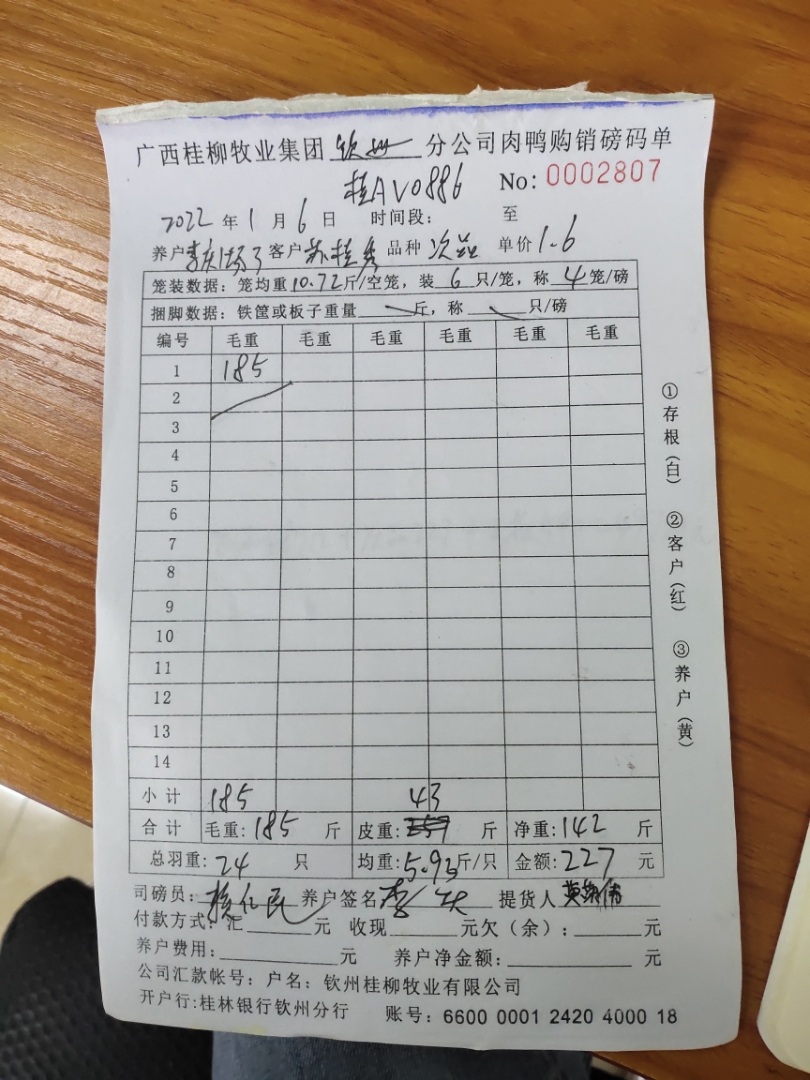 广西桂柳牧业集团 钦州 分公司肉鸭购销磅码单
桂AV0886 No: 0002807
2022 年 1 月 6 日 时间段: 至
养户 客户 苏桂秀 品种 次品 单价 1.6
笼装数据: 笼均重 10.72 斤/空笼, 装 6 只/笼, 称 4 笼/磅
捆脚数据: 铁筐或板子重量 斤, 称 只/磅
编号 毛重 毛重 毛重 毛重 毛重 毛重
1 185
2
3
4
5
6
7
8
9
10
11
12
13
14
小计 185 43
合计 毛重: 185 斤 皮重: 斤 净重: 142 斤
总羽重: 24 只 均重: 5.93 斤/只 金额: 227 元
司磅员: 养户签名 李 提货人
付款方式: 汇 元 收现 元欠(余): 元
养户费用: 元 养户净金额: 元
公司汇款帐号: 户名: 钦州桂柳牧业有限公司
开户行:桂林银行钦州分行 账号: 6600 0001 2420 4000 18
①存根(白) ②客户(红) ③养户(黄)